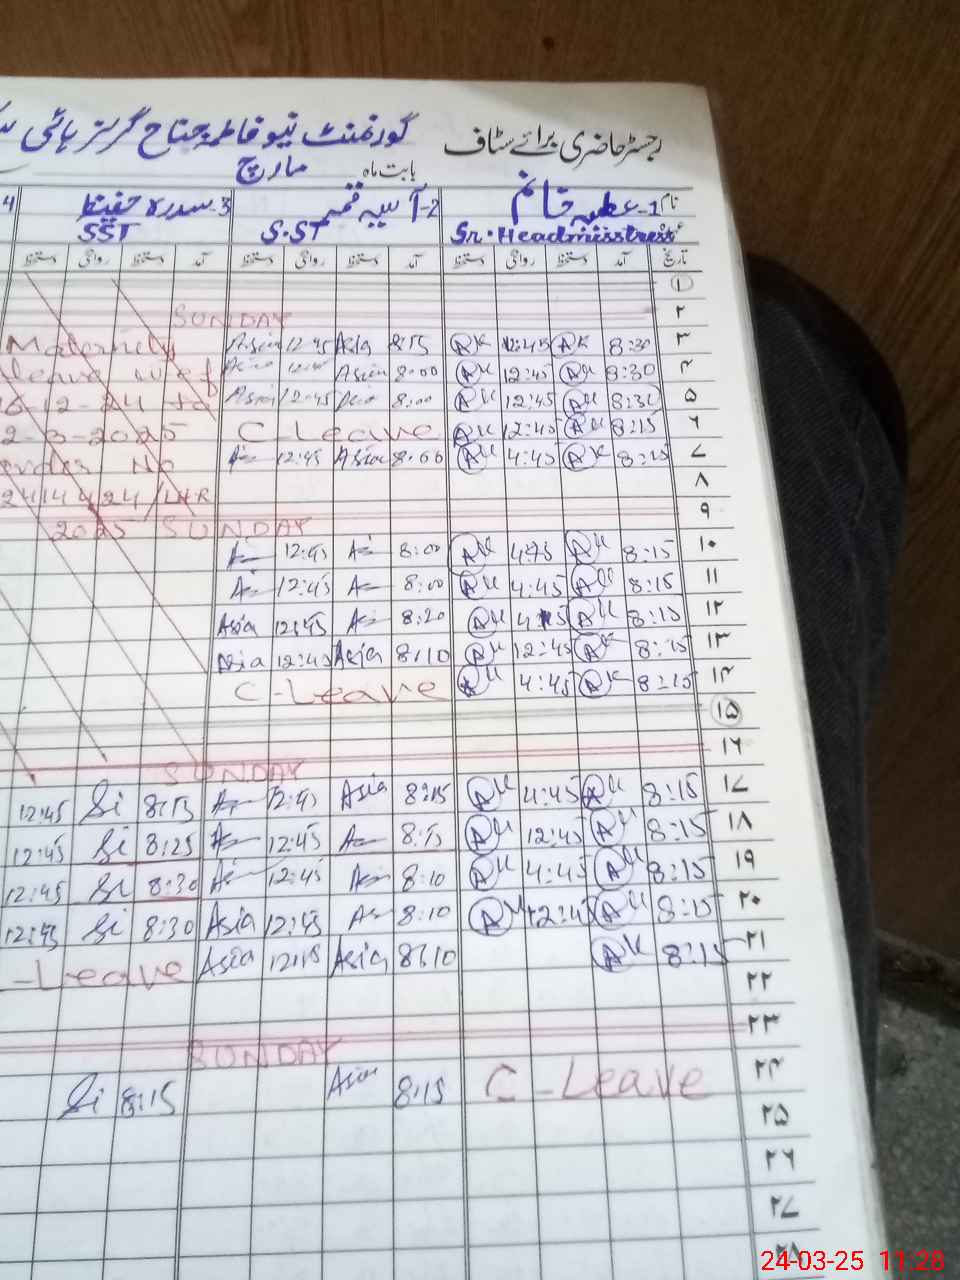 رجسٹر حاضری برائے سٹاف گورنمنٹ نیو فاطمہ جناح گرلز ہائی
بابت ماہ مارچ
نام 1- عطیہ خانم 2- آسیہ 3- سدرہ حفیظ 4
Sr. Headmisstress S.ST SST
تاریخ آمد دستخط روانگی دستخط آمد دستخط روانگی دستخط آمد دستخط روانگی دستخط
۱
۲ SUNDAY
۳ 8:30 AK 12:45 AK 8:15 Asia 12:45 Asia Maternity
۴ 8:30 AK 12:45 AK 8:00 Asia leave w.e.f
۵ AK 12:45 AK 8:00 12:45 24 to
۶ 8:15 AK 12:45 AK C-Leave 2-3-2025
۷ 8:15 AK 4:45 AK 8:00 Asia 12:45 order No
۸
۹ SUNDAY 2025
۱۰ 8:15 AK AK 8:00 12:45
۱۱ 8:15 AK 4:45 AK 8:00 12:45
۱۲ 8:15 AK AK 8:20 12:45 Asia
۱۳ 8:15 AK 12:45 AK 8:10 Asia 12:45 Asia
۱۴ 8:15 AK 4:45 AK C-Leave
۱۵
۱۶ SUNDAY
۱۷ 8:15 AK 4:45 AK 8:15 Asia 12:45 8:15 Si 12:45
۱۸ 8:15 AK 12:45 AK 8:15 12:45 8:25 Si 12:45
۱۹ 8:15 AK 4:45 AK 8:10 12:45 8:30 Si 12:45
۲۰ 8:15 AK 12:45 AK 8:10 12:45 Asia 8:30 Si 12:45
۲۱ 8:15 AK 8:10 Asia Asia -Leave
۲۲
۲۳ SUNDAY
۲۴ C-Leave 8:15 Asia 8:15 Si
۲۵
۲۶
۲۷
۲۸
24-03-25 11:28